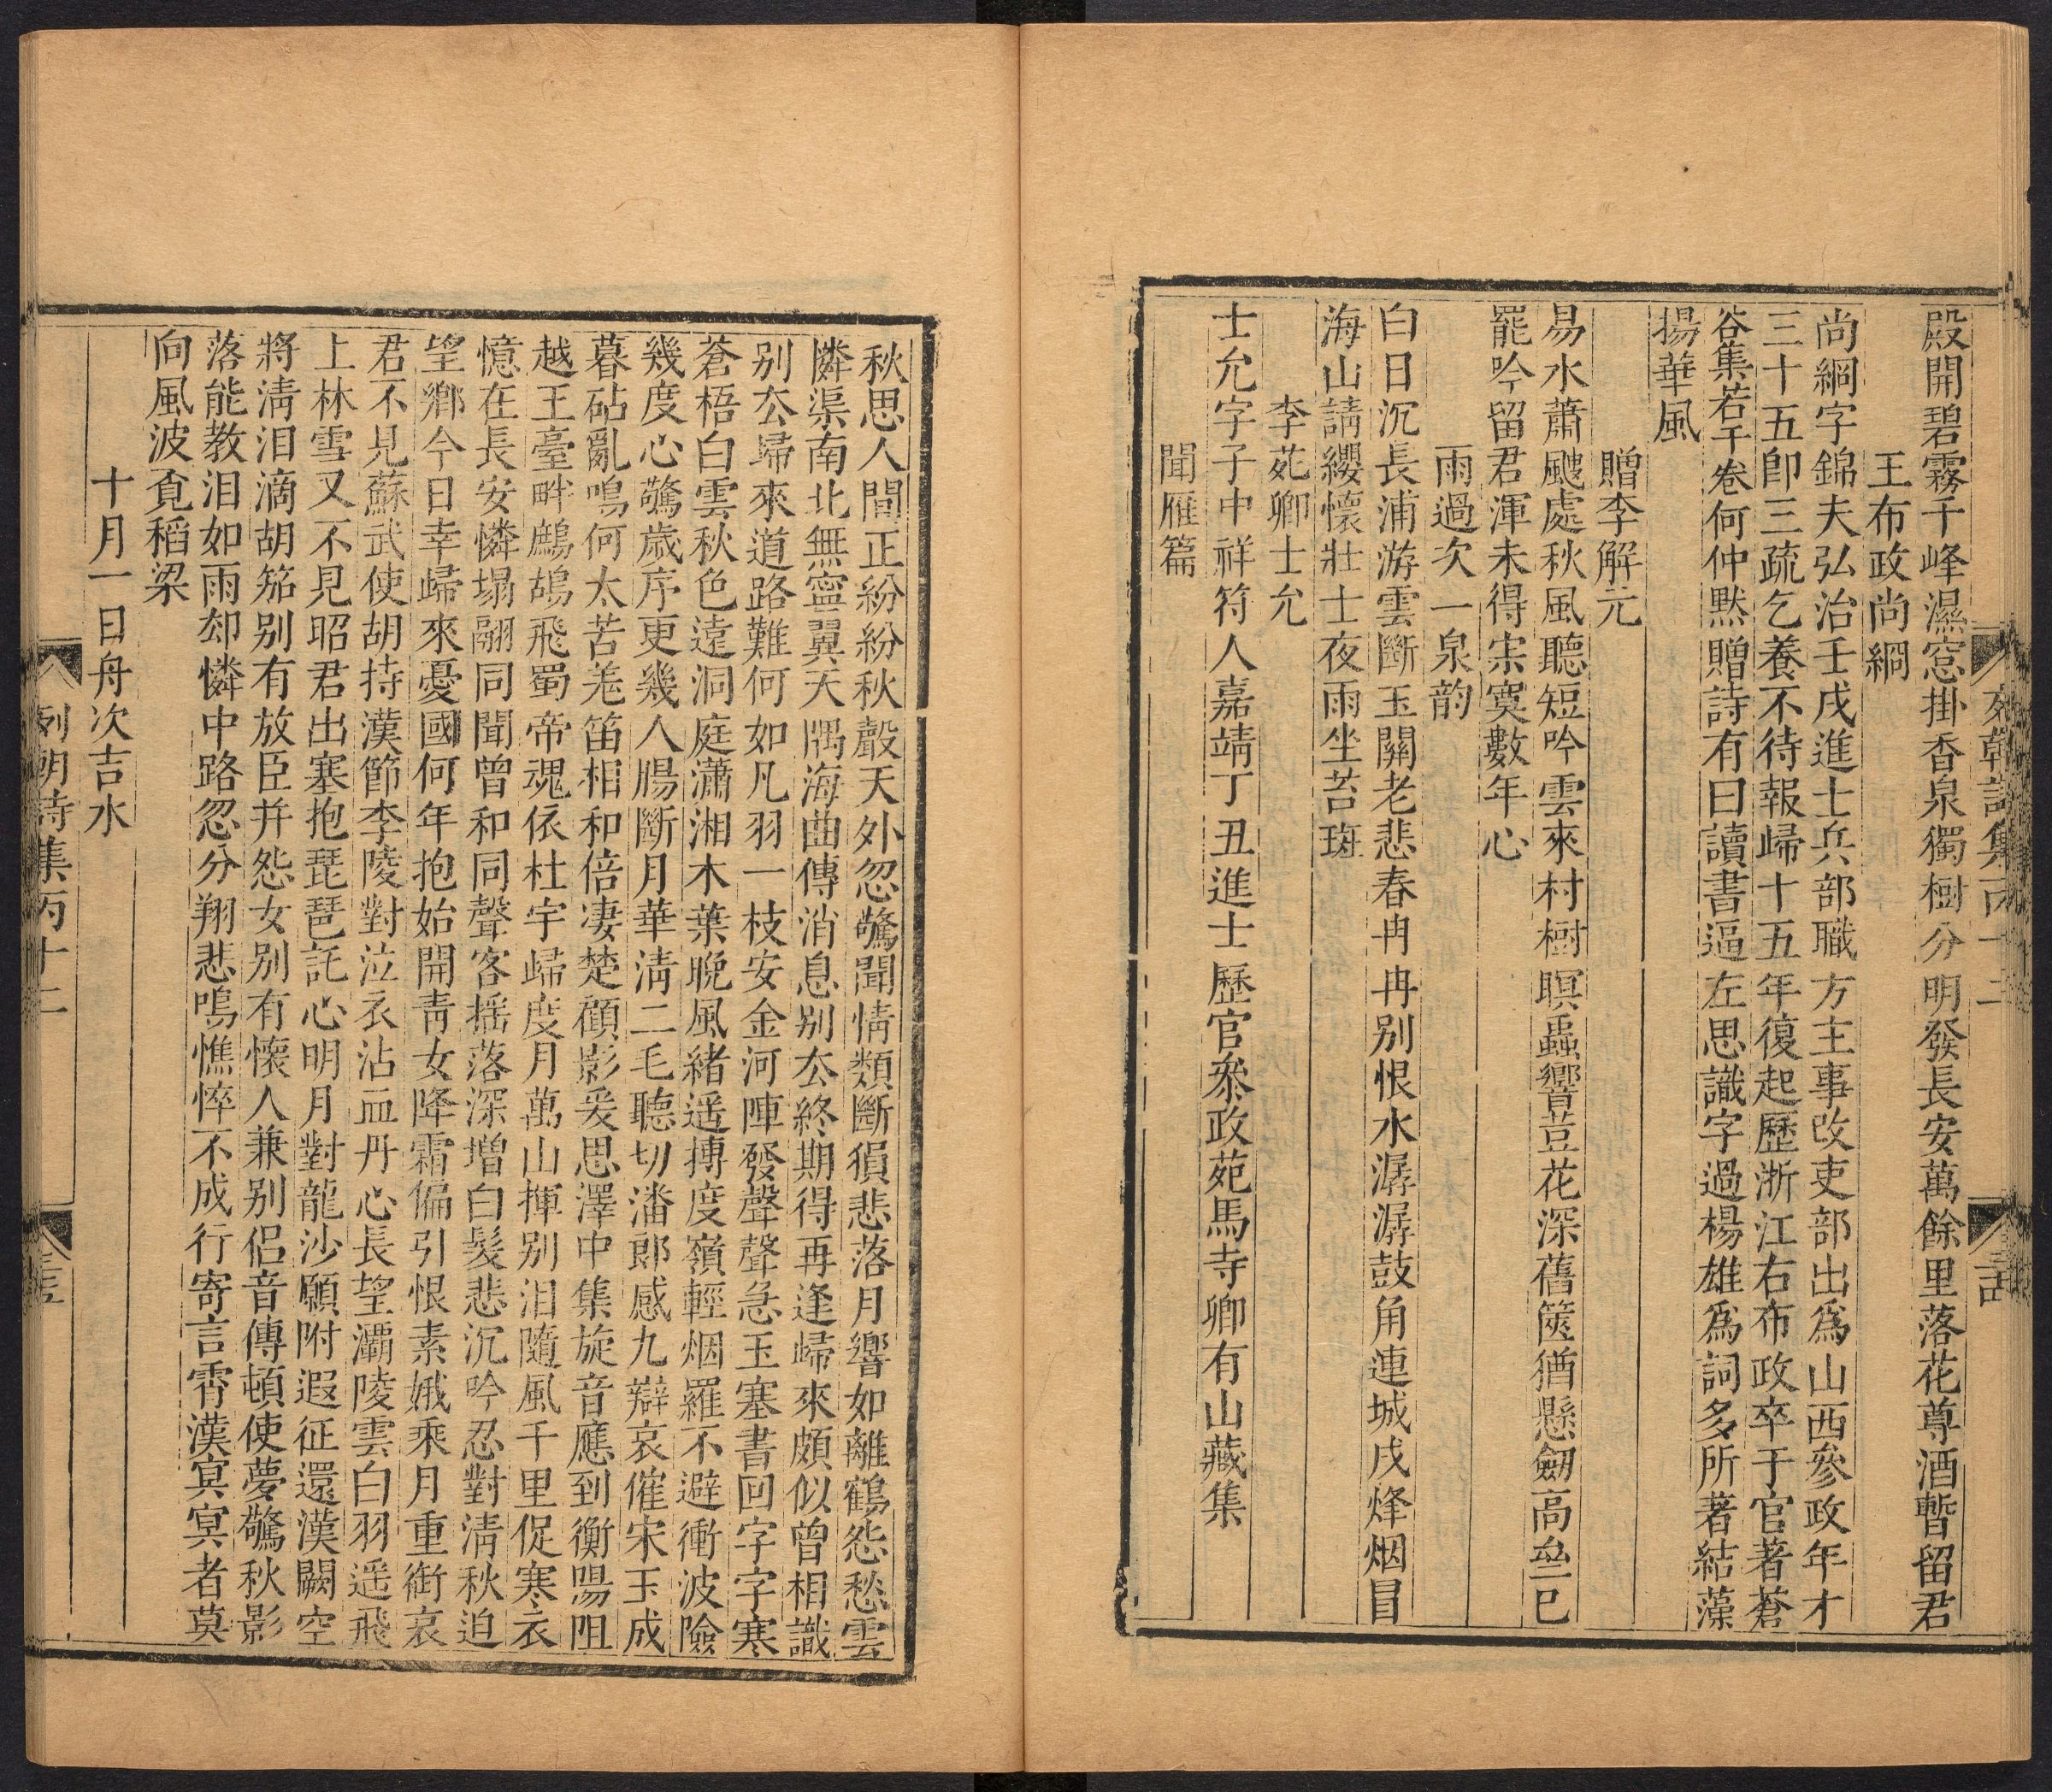 殿開碧霧千峰濕窓掛香泉獨樹分明發長安萬餘里落花尊酒暫留君
王布政尚綱
尚綱字錦夫弘治壬戌進士兵部職方主事改吏部出爲山西參政年才
三十五卽三疏乞養不待報歸十五年復起歷浙江右布政卒于官著蒼
谷集若干卷何仲黙贈詩有曰讀書逼左思識字過楊雄爲詞多所著結藻
揚華風
贈李解元
易水蕭颼處秋風聽短吟雲來村樹暝蟲響荳花深舊篋猶懸劒高壘已
罷吟留君渾未得宋寞數年心
雨過次一泉韵
白日沉長浦游雲斷玉關老悲春冉冉别恨水潺潺鼓角連城戌烽烟冒
海山請纓懷壯士夜雨坐苔斑
李苑卿士允
士允字子中祥符人嘉靖丁丑進士歷官叅政苑馬寺卿有山藏集
聞雁篇
秋思人間正紛紛秋聲天外忽驚聞情類斷猿悲落月響如離鶴怨愁雲
憐渠南北無寧翼天隅海曲傳消息别去終期得再逢歸來頗似曾相識
别去歸來道路難何如凡羽一枝安金河陣發聲聲急玉塞書回字字寒
蒼梧白雲秋色遠洞庭瀟湘木葉晚風緒遥摶度嶺輕烟羅不避衝波險
幾度心驚歲序更幾人腸斷月華清二毛聽切潘郎感九辯哀催宋玉成
暮砧亂鳴何太苦羗笛相和倍凄楚顧影爰思澤中集旋音應到衡陽阻
越王臺畔鷓鴣飛蜀帝魂依杜宇歸度月萬山揮别泪隨風千里促寒衣
憶在長安憐塌翮同聞曾和同聲客揺落深增白髮悲沉吟忍對清秋迫
望鄉今日幸歸來憂國何年抱始開青女降霜偏引恨素娥乘月重銜哀
君不見蘇武使胡持漢節李陵對泣衣沾血丹心長望灞陵雲白羽遥飛
上林雪又不見昭君出塞抱琵琶託心明月對龍沙願附遐征還漢闕空
將清泪滴胡笳别有放臣并怨女别有懷人兼别侣音傳頓使夢驚秋影
落能教泪如雨却憐中路忽分翔悲鳴憔悴不成行寄言霄漢冥冥者莫
向風波覔稻梁
十月一日舟次吉水
列朝詩集丙十二